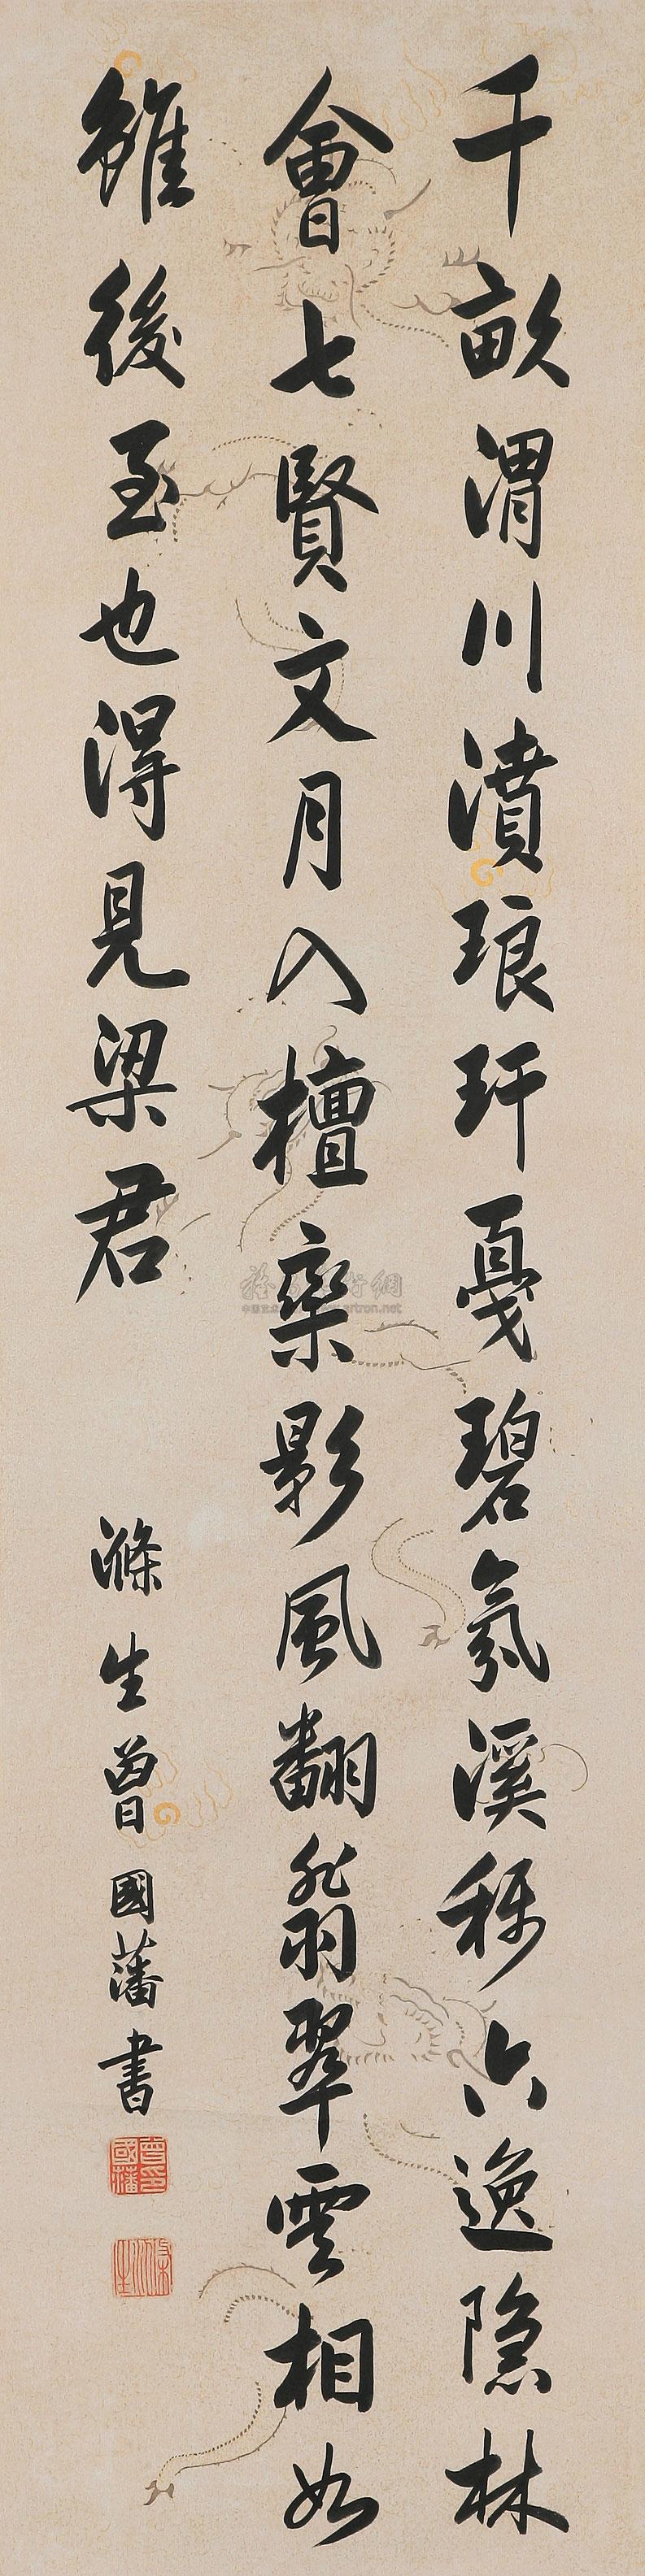 千畝渭川濆琅玕戛碧氛溪稱六逸隱林
會七賢文月入檀欒影風翻翡翠雲相如
雖後至也得見梁君
滌生曾國藩書
曾國藩印
滌生